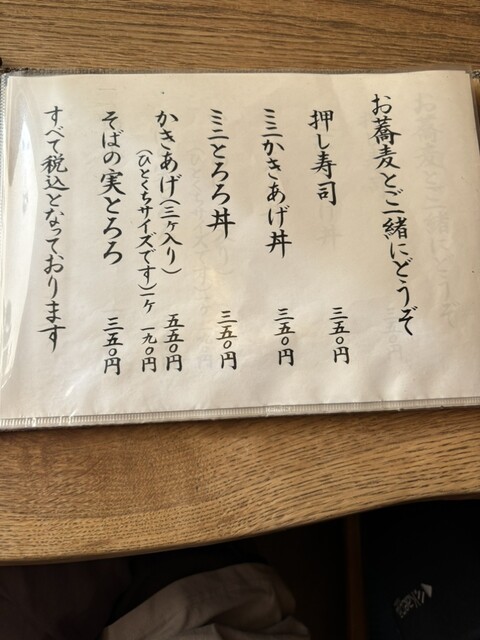 お蕎麦とご一緒にどうぞ
押し寿司 三五〇円
ミニかきあげ丼 三五〇円
ミニとろろ丼 三五〇円
かきあげ(三ヶ入り) 五五〇円
(ひとくちサイズです)一ヶ 一九〇円
そばの実とろろ 三五〇円
すべて税込となっております